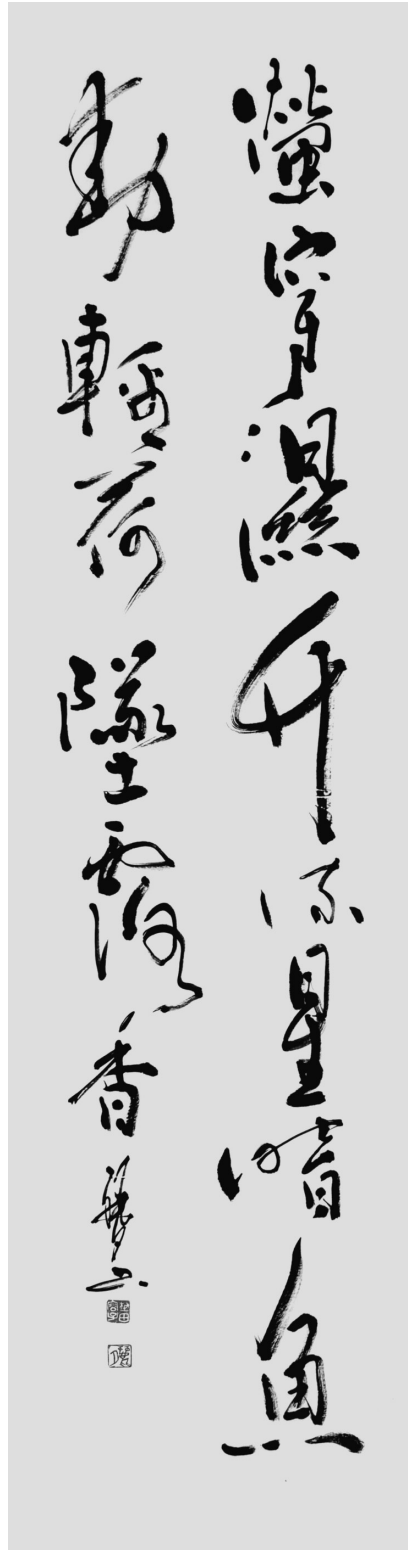 螢穿濕竹流星暗魚
動輕荷墜露香